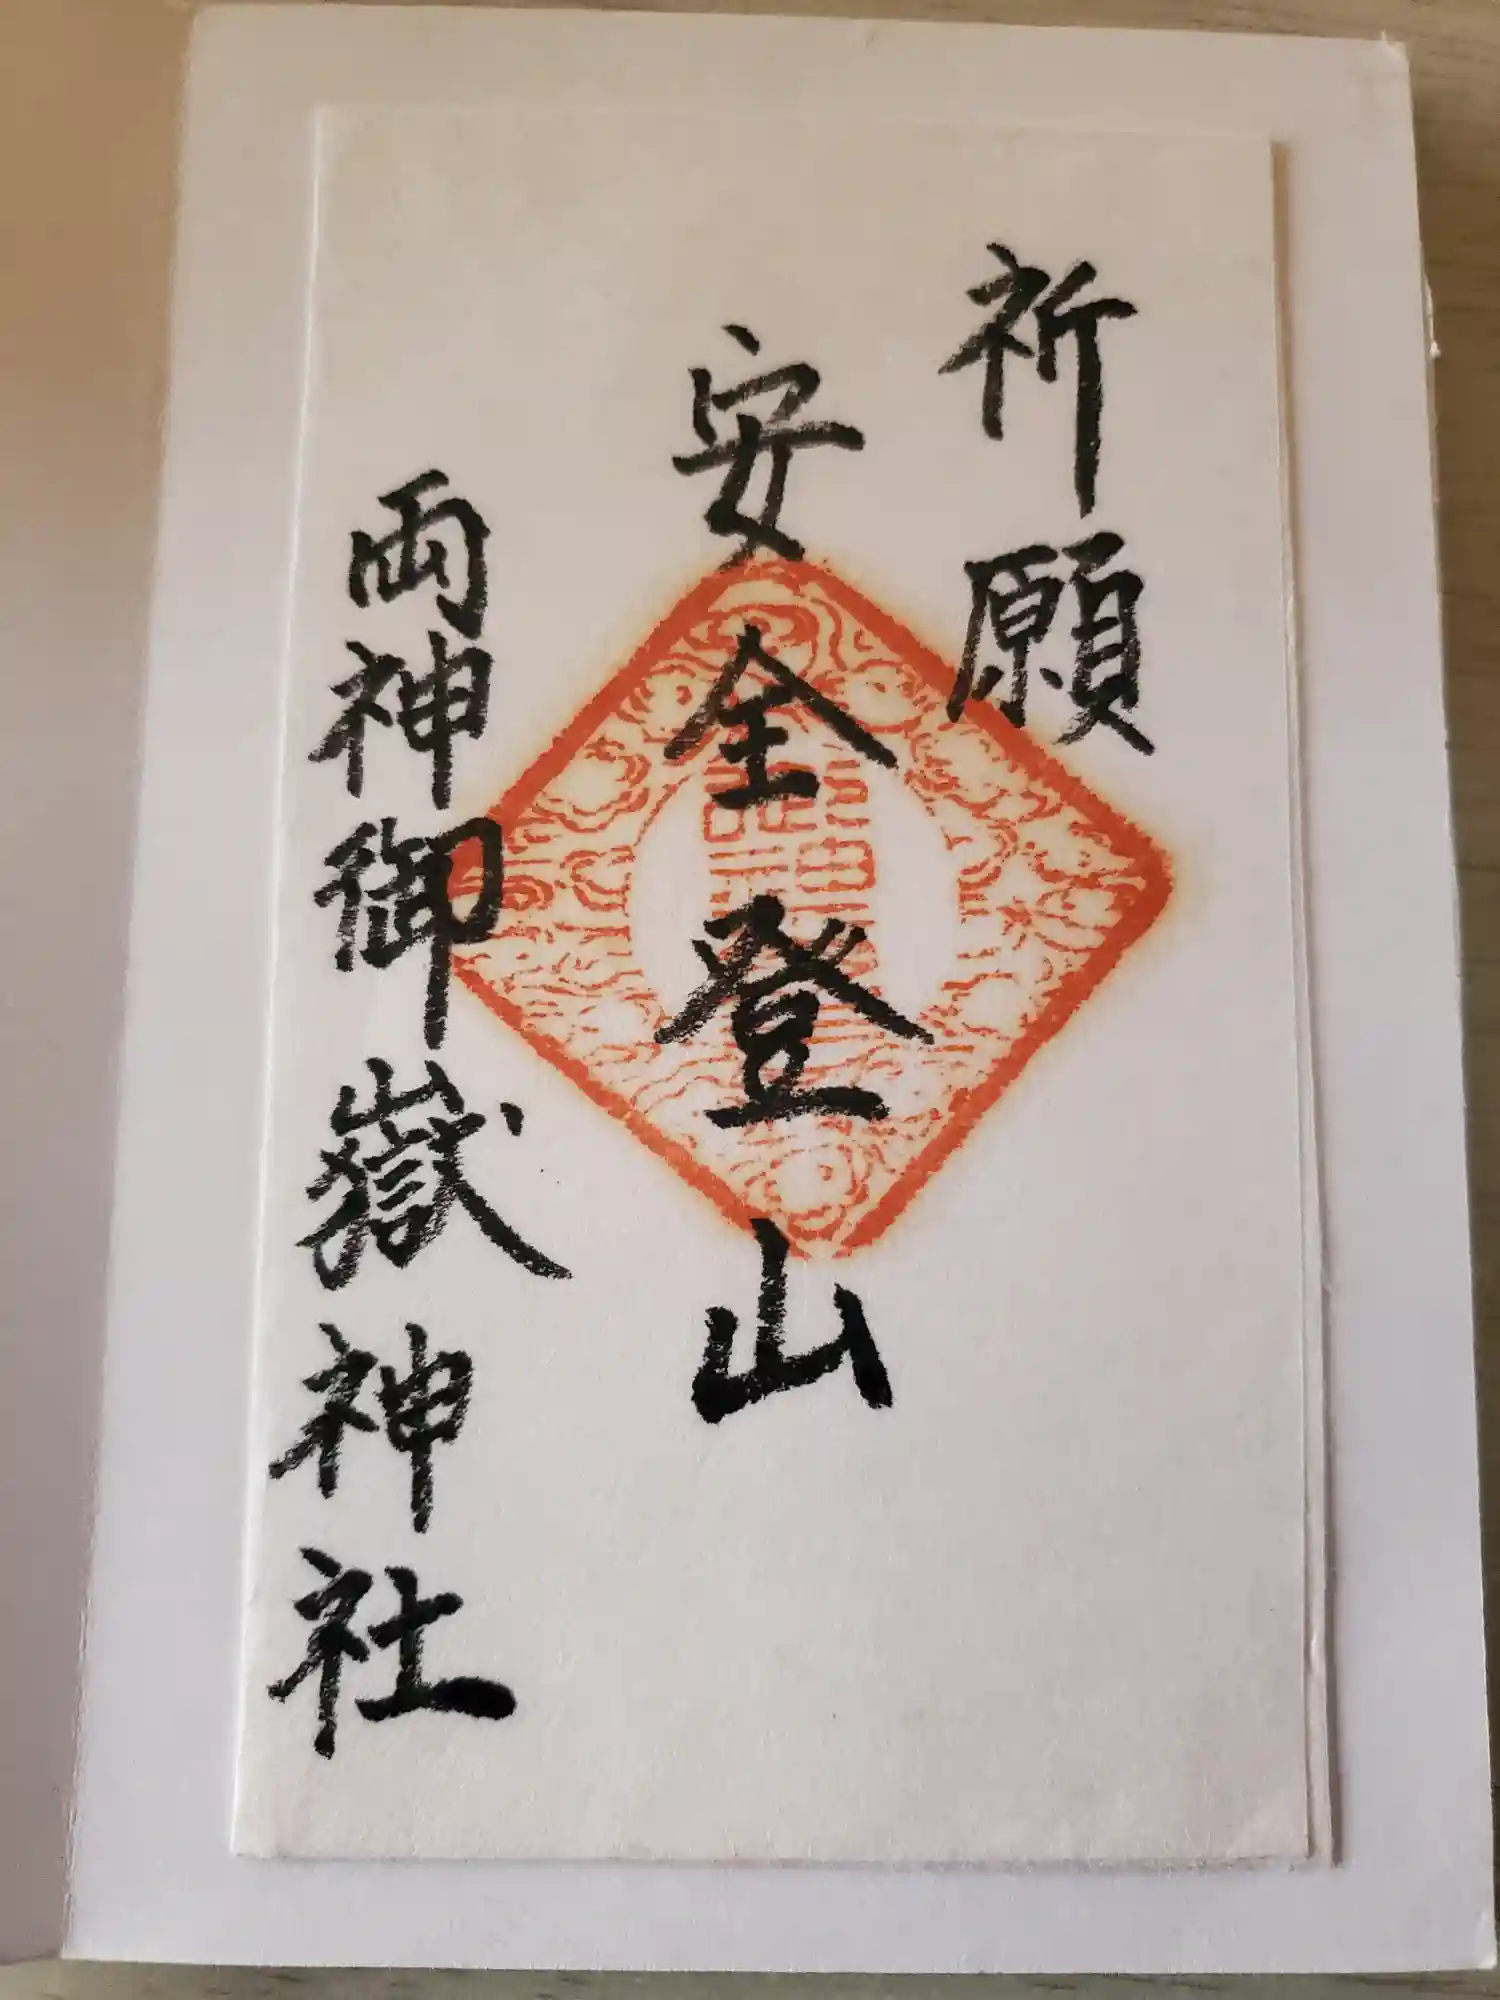 祈願
安全登山
両神御嶽神社